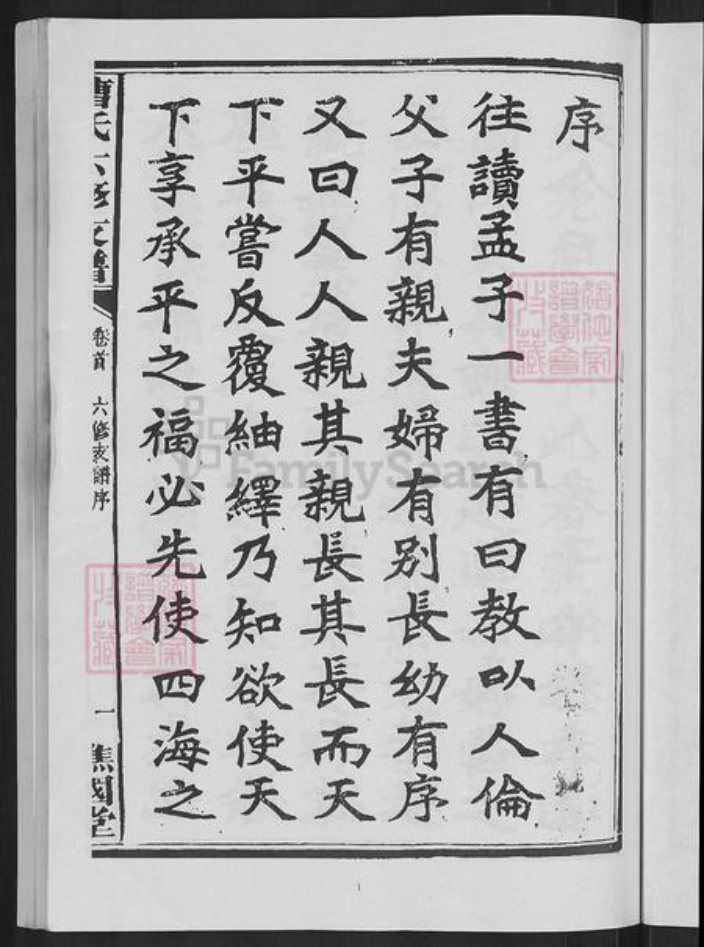 序
往讀孟子一書有曰教以人倫
父子有親夫婦有別長幼有序
又曰人人親其親長其長而天
下平嘗反覆紬繹乃知欲使天
下享承平之福必先使四海之
曹氏六修支譜
卷首
六修支譜序
一
譙國堂
FamilySearch
譜學會
1